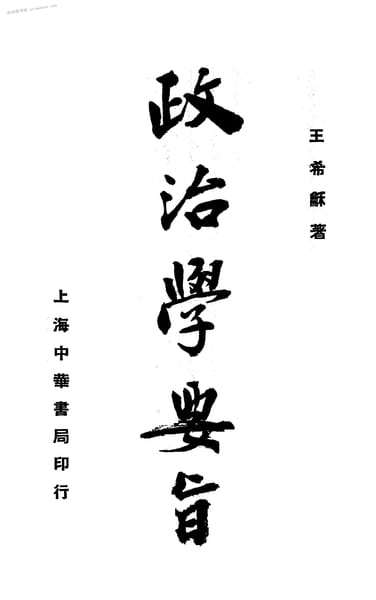 王希龢著
政治學要旨
上海中華書局印行